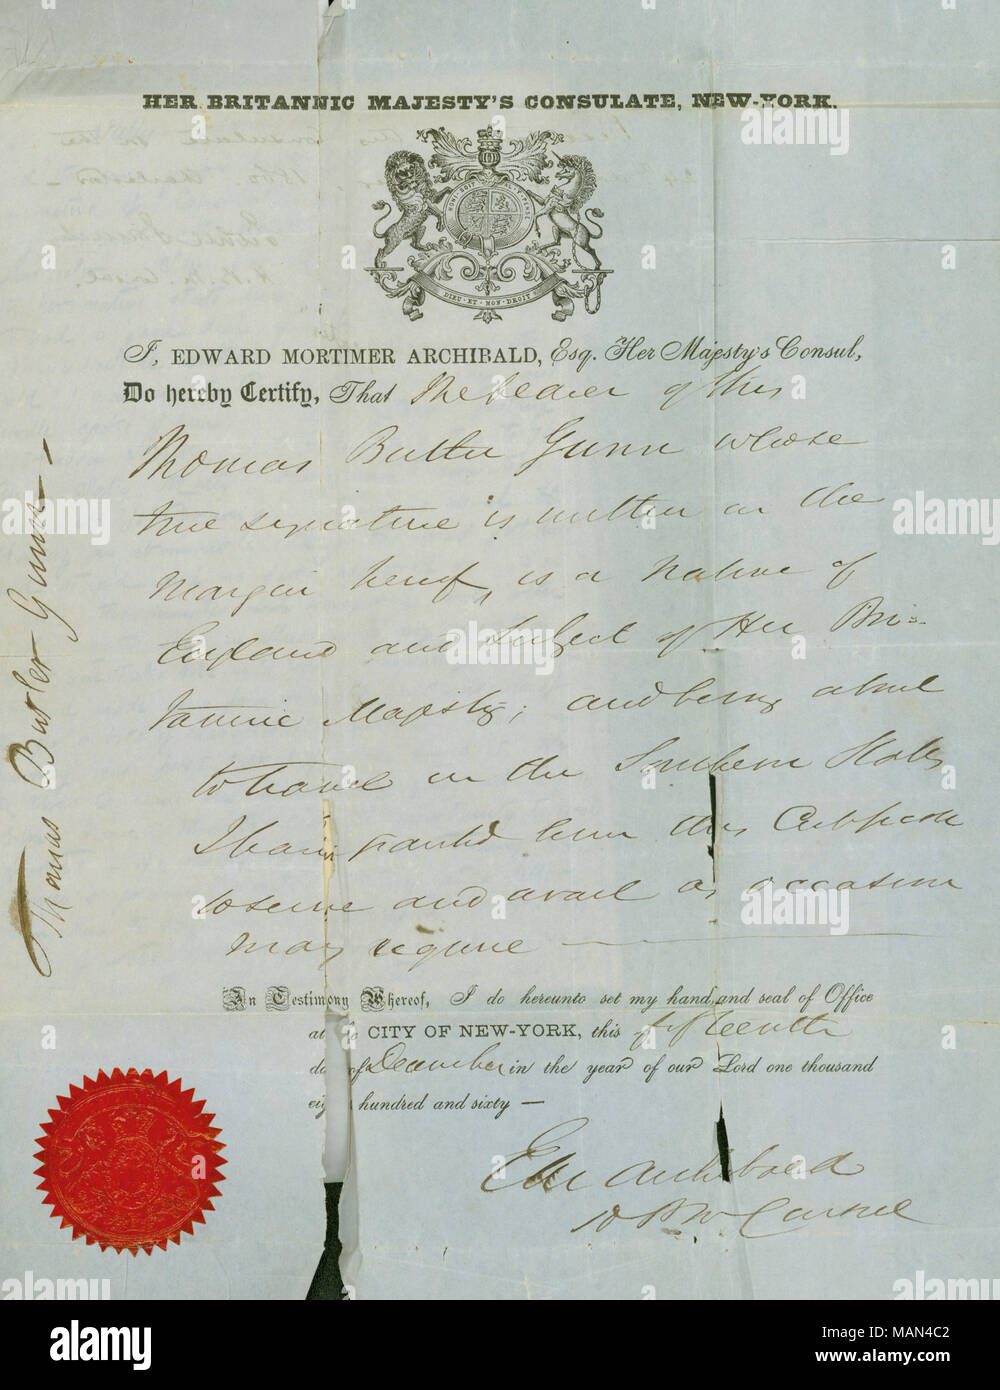 HER BRITANNIC MAJESTY'S CONSULATE, NEW-YORK.
HONI SOIT QUI MAL Y PENSE
DIEU ET MON DROIT
I, EDWARD MORTIMER ARCHIBALD, Esq. Her Majesty's Consul,
Do hereby Certify, That the bearer of this
Thomas Butler Gunn whose
true signature is written on the
Margin hereof, is a native of
England and Subject of Her Bri-
tannic Majesty; and being about
to travel in the Southern States
I have granted him this Certificate
to serve and avail as occasion
may require —
In Testimony Whereof, I do hereunto set my hand and seal of Office
at the CITY OF NEW-YORK, this fifteenth
day of December in the year of our Lord one thousand
eight hundred and sixty —
E M Archibald
H B M Consul
Thomas Butler Gunn —
alamy
alamy stock photo
Image ID: MAN4C2
www.alamy.com